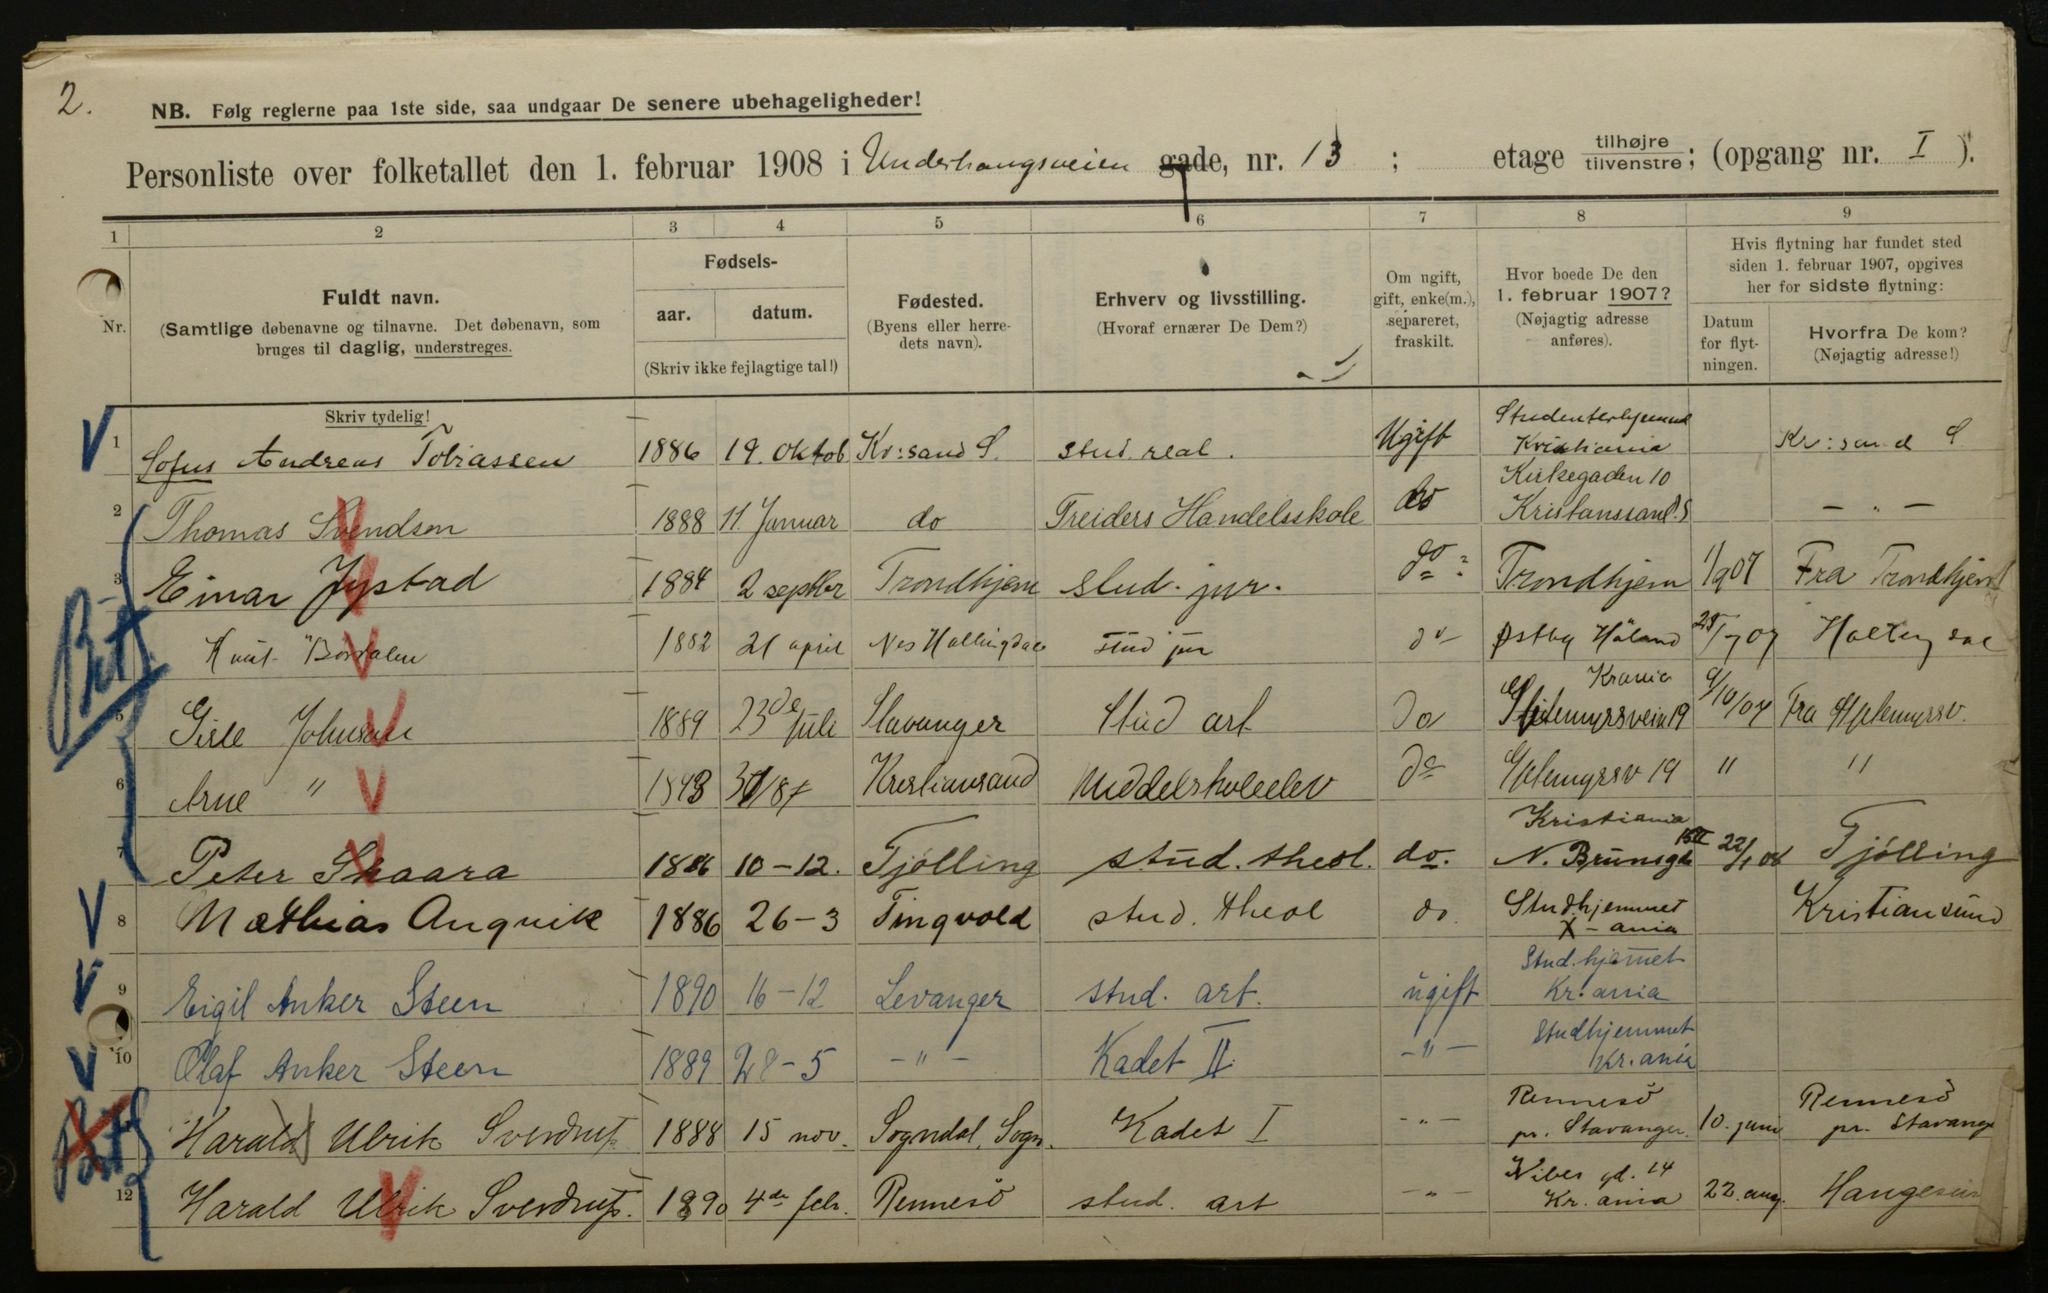 2.
NB. Følg reglerne paa 1ste side, saa undgaar De senere ubehageligheder!
Personliste over folketallet den 1. februar 1908 i Underhaugsveien gade, nr. 13 ; etage tilhøjre tilvenstre; (opgang nr. I ).
1 2 3 4 5 6 7 8 9
Nr.
Fuldt navn.
(Samtlige døbenavne og tilnavne. Det døbenavn, som
bruges til daglig, understreges.
Skriv tydelig!
Fødsels-
aar. datum.
(Skriv ikke fejlagtige tal!)
Fødested.
(Byens eller herre-
dets navn).
Erhverv og livsstilling.
(Hvoraf ernærer De Dem?)
Om ugift,
gift, enke(m.),
separeret,
fraskilt.
Hvor boede De den
1. februar 1907?
(Nøjagtig adresse
anføres).
Hvis flytning har fundet sted
siden 1. februar 1907, opgives
her for sidste flytning:
Datum
for flyt-
ningen.
Hvorfra De kom?
(Nøjagtig adresse!)
1 Sofus Andreas Tobiassen 1886 19. Oktob Kr:sand S. stud. real. Ugift Kristiania Kr:sand S.
2 Thomas Svendsen 1888 11 Januar do Treiders Handelsskole do Kirkegaden 10 Kristianssand.S — " —
3 Einar Jystad 1884 2 septbr Trondhjem stud. jur. do Trondhjem 1/9 07 Fra Trondhjem
Knut 1882 21 april Nes Hallingdal stud jur do Østby Høland 07
5 Gisle Johnson 1889 23de Juli Stavanger Stud art do Krania 19 9/10/07 Fra Gjetemyrsv.
6 Arne " Kristiansand Middelskoleelev do Gjetemyrsv 19 " "
7 Peter Skaara 1886 10-12. Tjölling stud. theol. do. Kristiania N. Brunsgd 22/1 08 Tjölling
8 Mathias Angvik 1886 26-3 Tingvold stud. theol do. Studhjemmet X-ania Kristiansund
9 Eigil Anker Steen 1890 16-12 Levanger stud. art. ugift Stud.hjemmet Kr:ania
10 Olaf Anker Steen 1889 28-5 -"- Kadet II -"- Studhjemmet Kr.ania
Harald Ulrik Sverdrup 1888 15 nov. Sogndal, Sogn. Kadet I -"- Rennesö pr. Stavanger. 10. juni Rennesö pr. Stavanger
12 Harald Ulrik Sverdrup. 1890 4de febr. Rennesö stud. art -"- Nibes gd. 14 Kr.ania 22. aug.